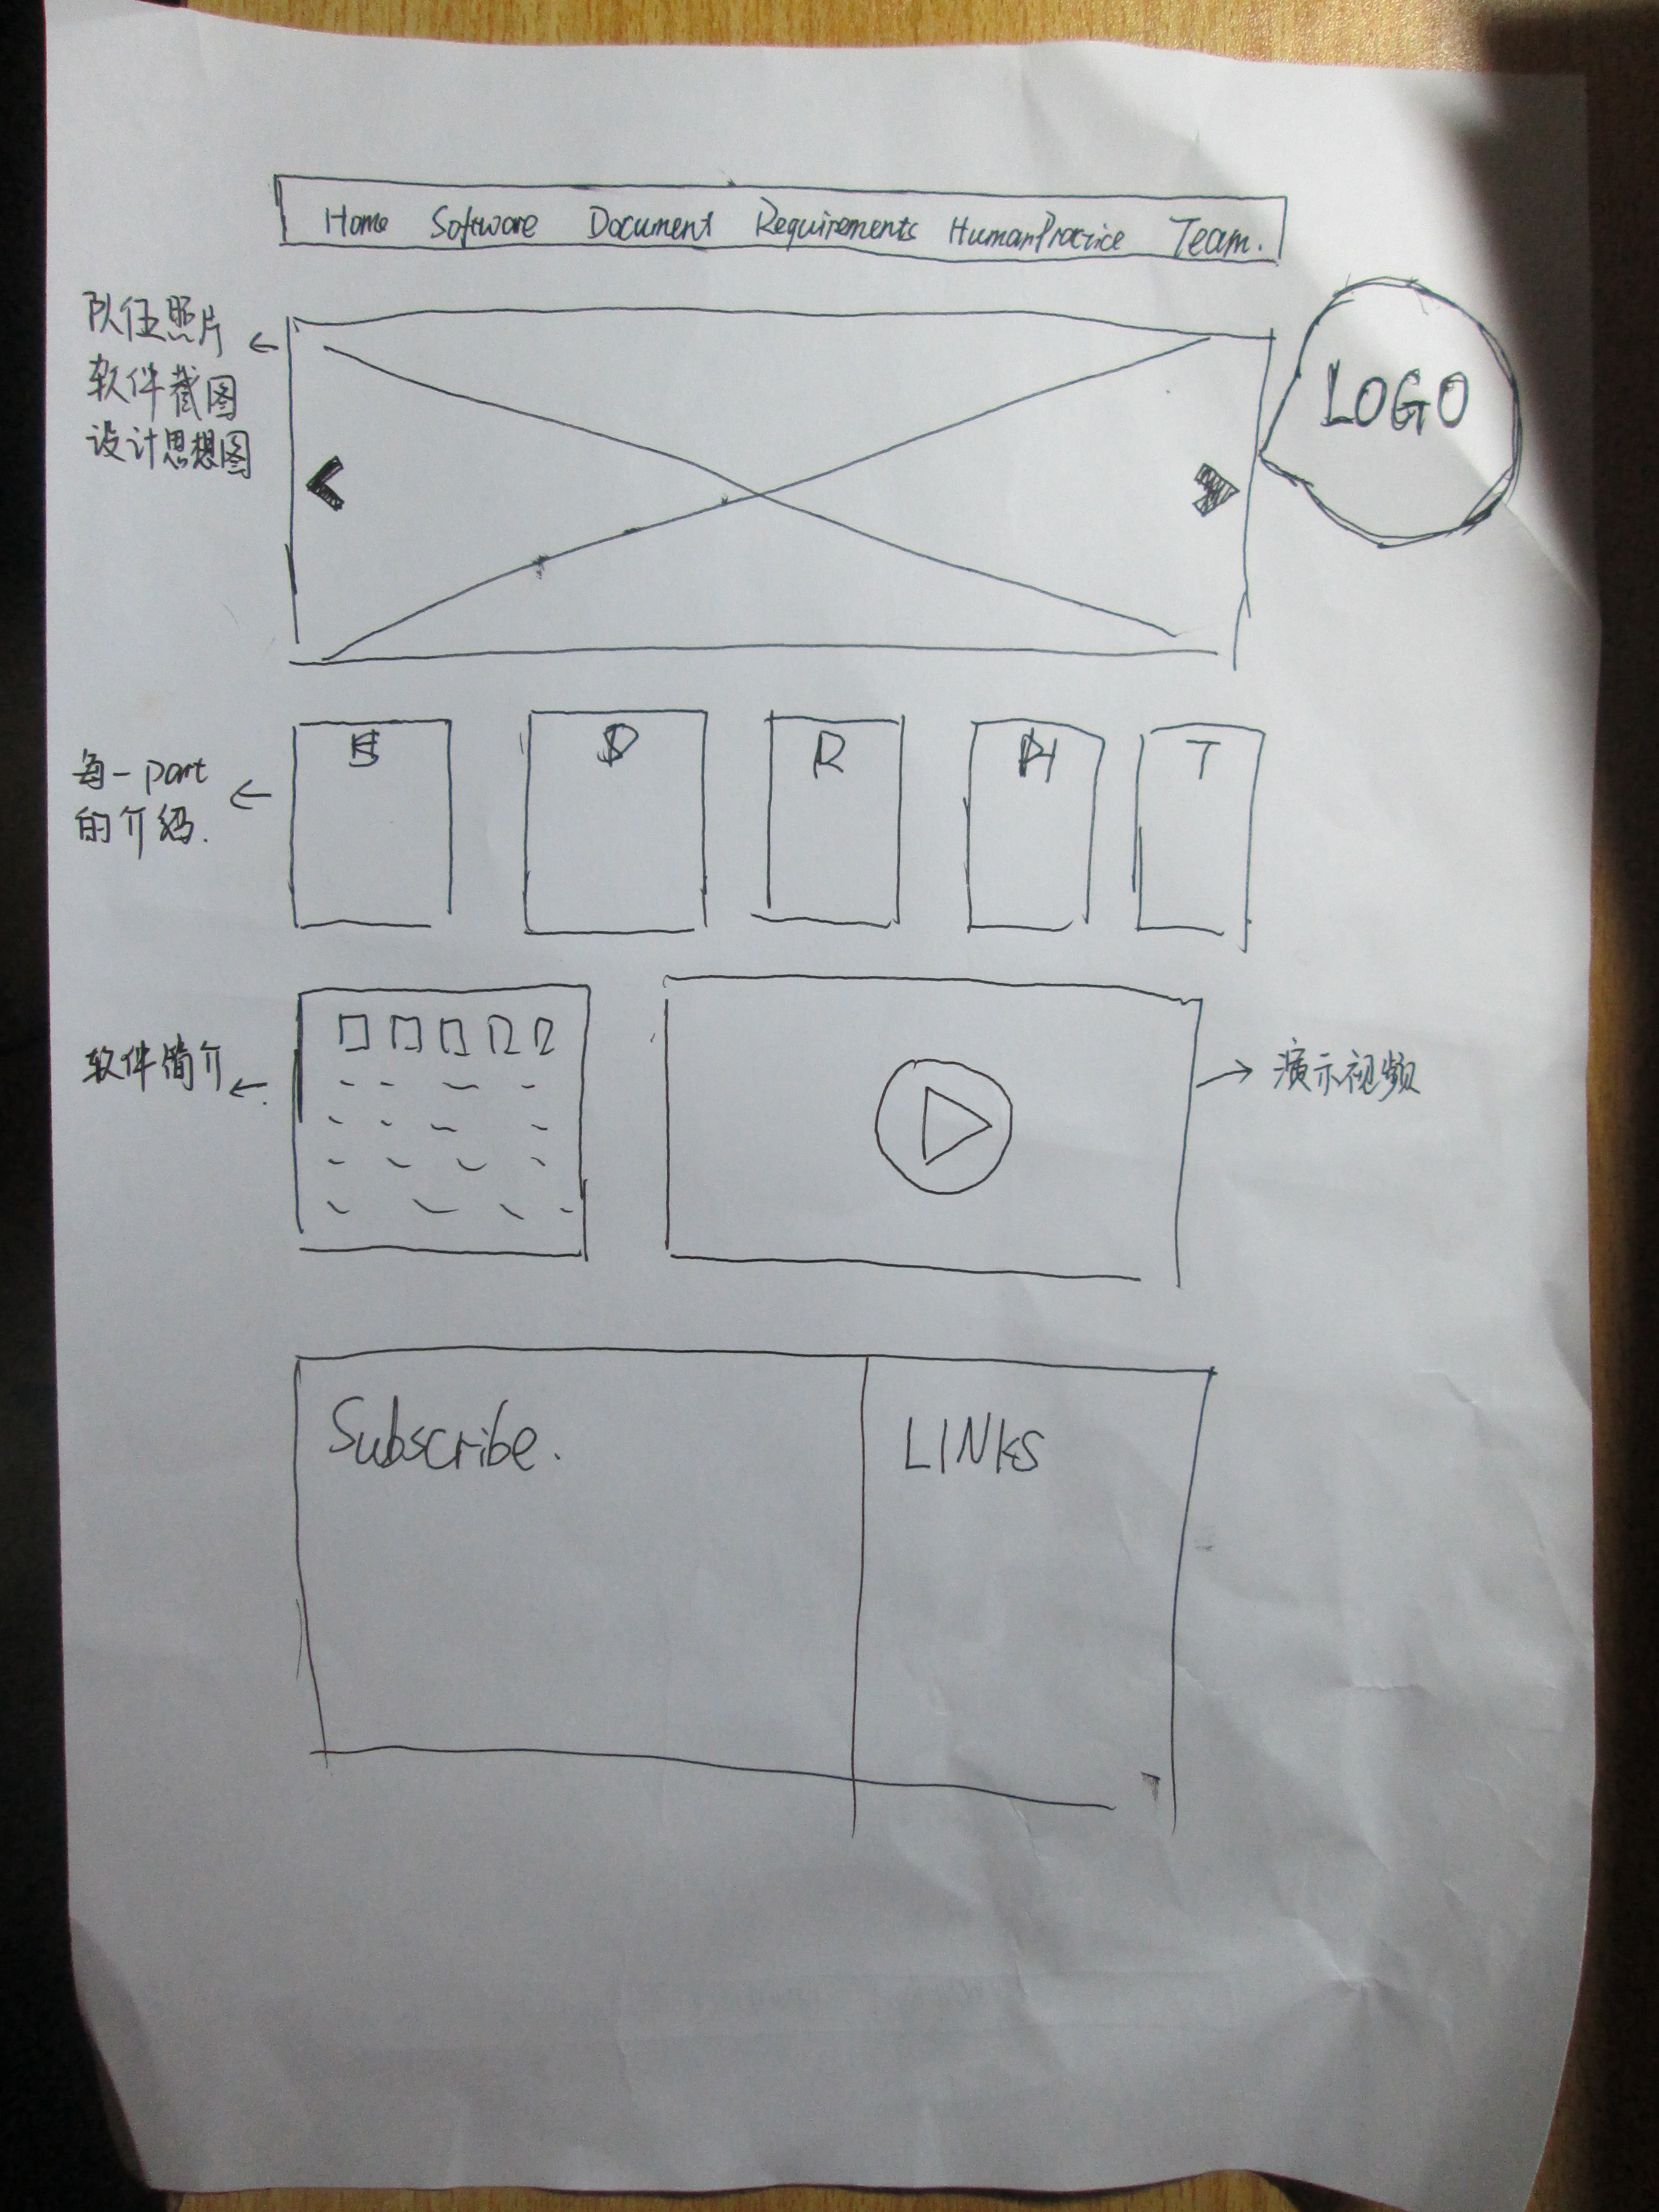 Home Software Document Requirements HumanPractice Team.
队伍照片
软件截图
设计思想图
LOGO
R T
每一part
的介绍.
软件简介
演示视频
Subscribe.
LINKS